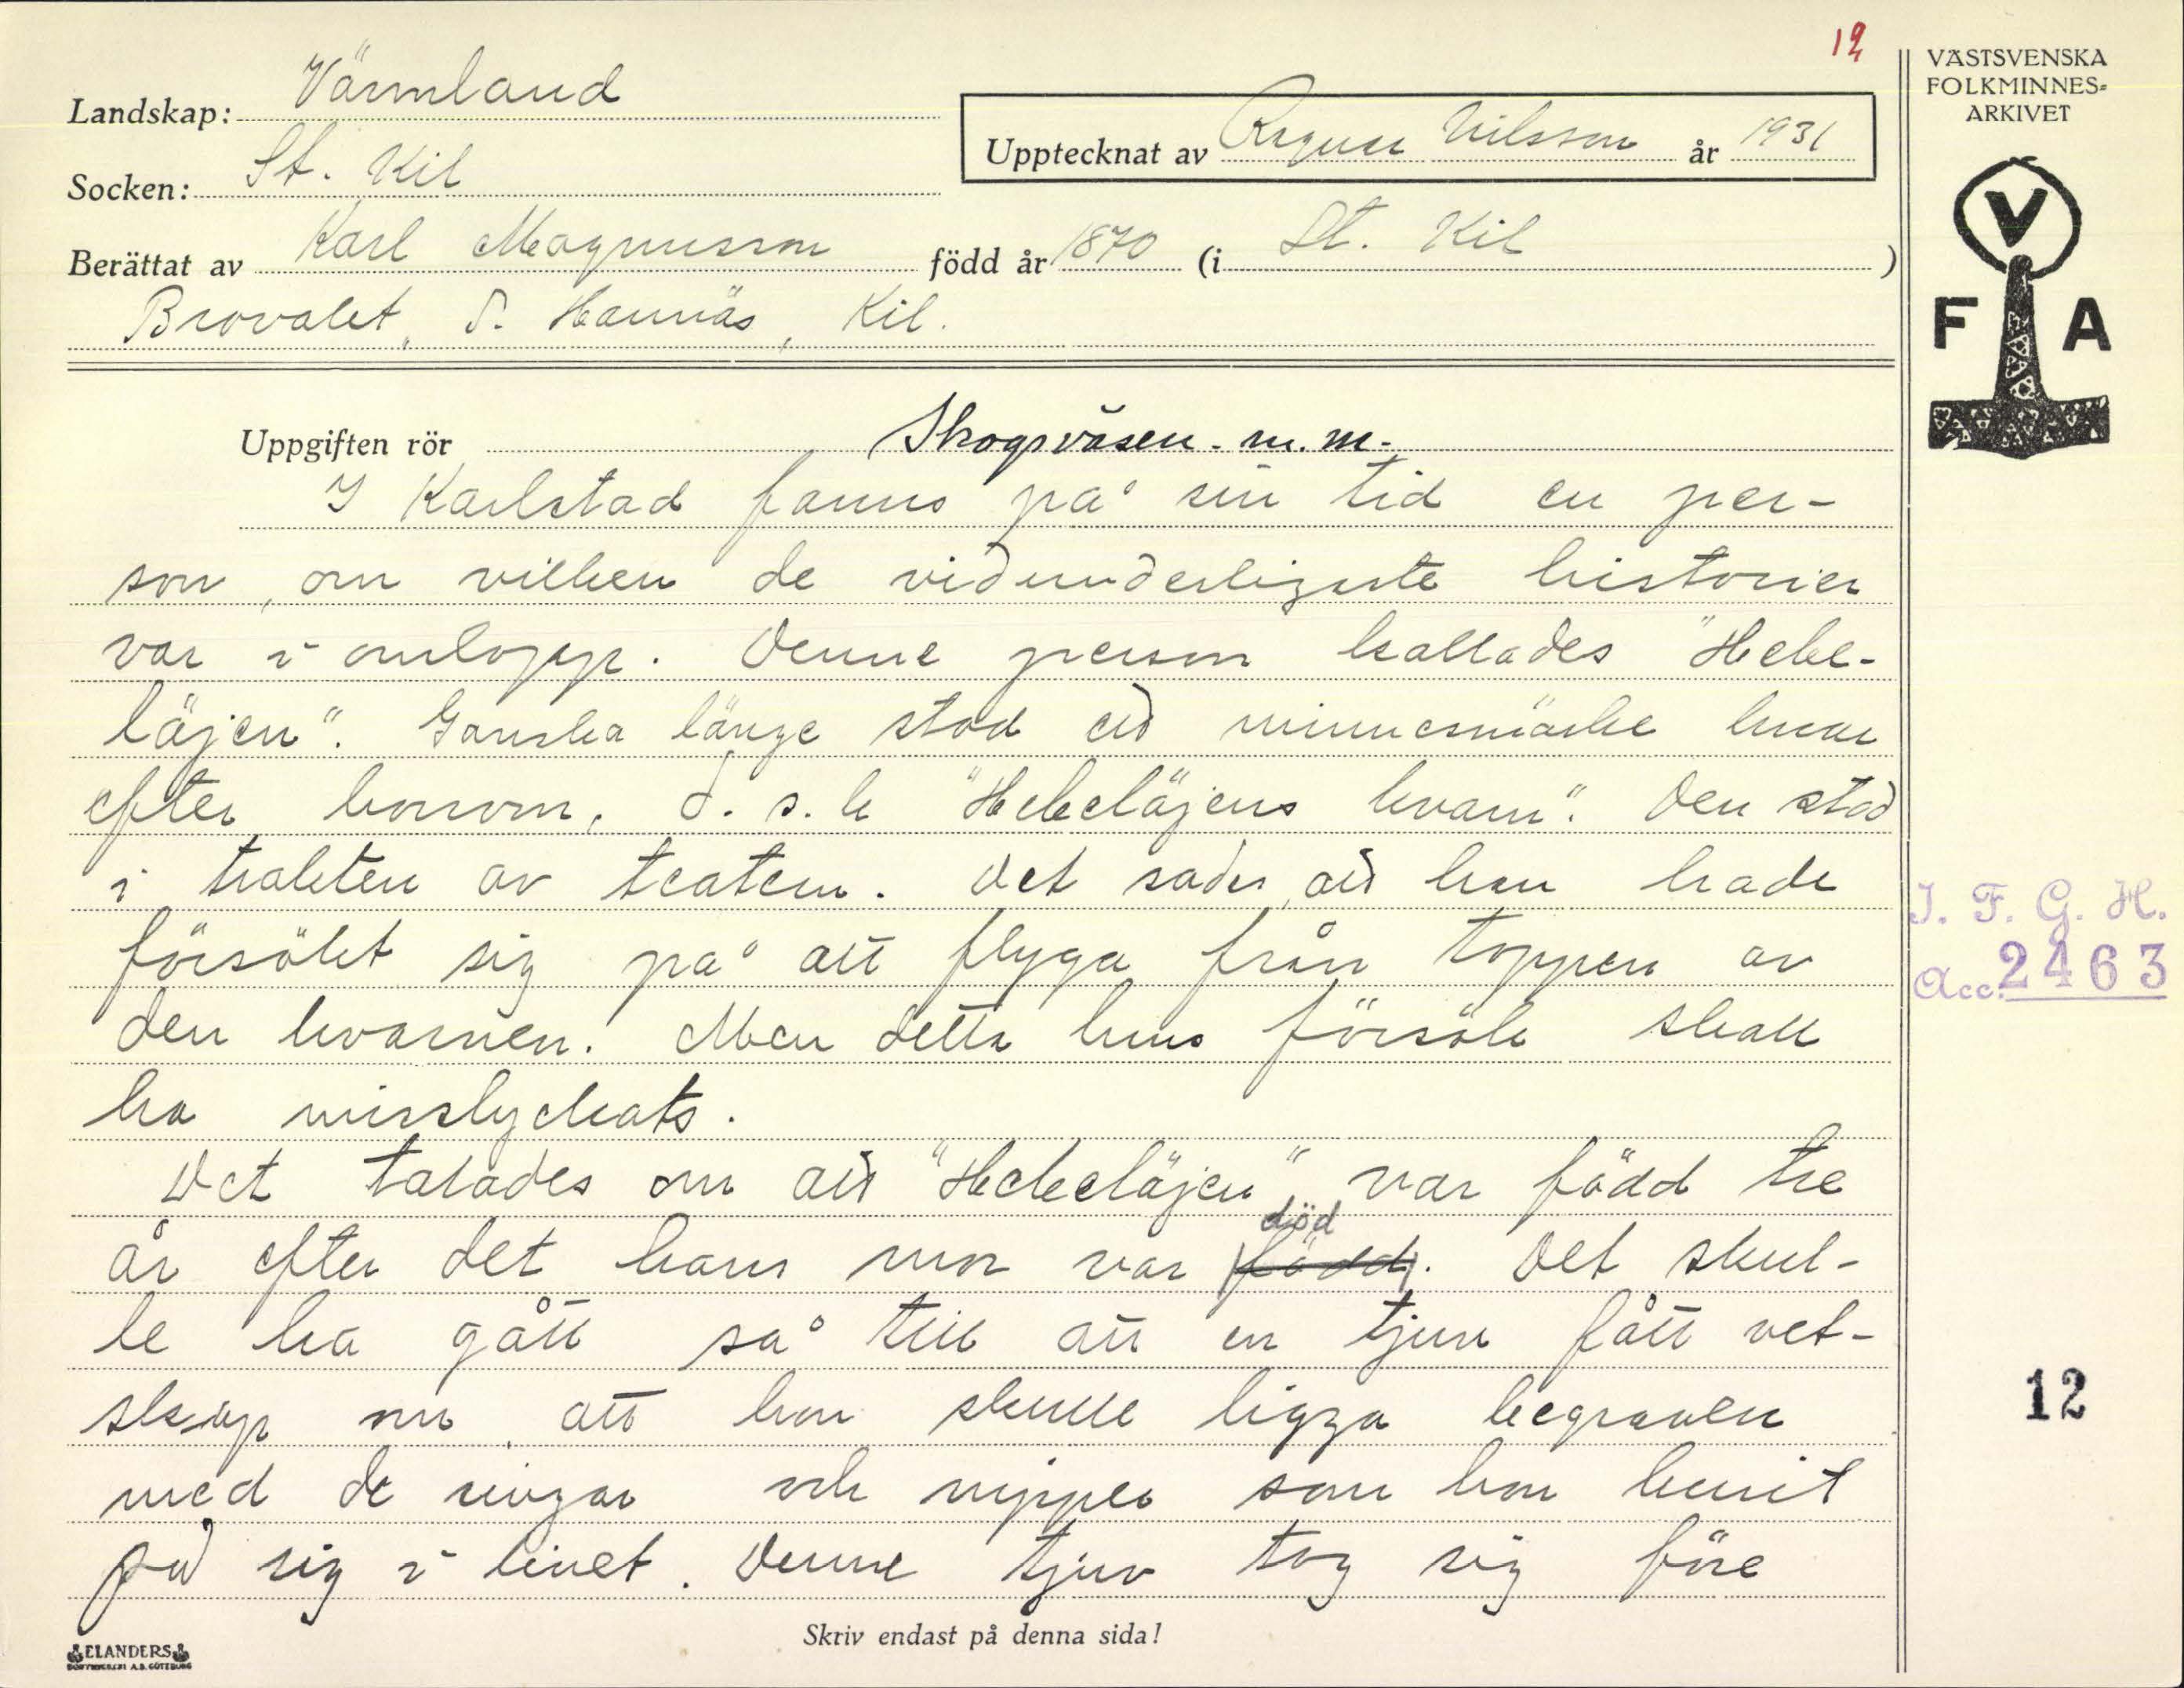 12
VÄSTSVENSKA
FOLKMINNES=
ARKIVET
Landskap: Värmland
Upptecknat av Ragnar Nilsson år 1931
Socken: St. Kil
Berättat av Karl Magnusson född år 1870 (i St. Kil )
Brovalet, S. Hannäs, Kil.
V
F A
Uppgiften rör Skogsväsen. m. m.
I Karlstad fanns på sin tid en per-
son, om vilken de vidunderligaste historier
var i omlopp. Denne person kallades "Heke-
läjen". Ganska länge stod ett minnesmärke kvar
efter honom, d. s. k "Hekeläjens kvarn". Den stod
i trakten av teatern. Det sades, att han hade
försökt sig på att flyga från toppen av
den kvarnen. Men detta hans försök skall
ha misslyckats.
Det talades om att "Hekeläjen" var född tre
år efter det hans mor var född död. Det skul-
le ha gått så till att en tjuv fått vet-
skap om, att hon skulle ligga begraven
med de ringar och nipper som hon burit
på sig i livet. Denne tjuv tog sig före
I. F. G. H.
Acc. 2463
12
Skriv endast på denna sida!
ELANDERS
BOKTRYCKERI A.B. GÖTEBORG